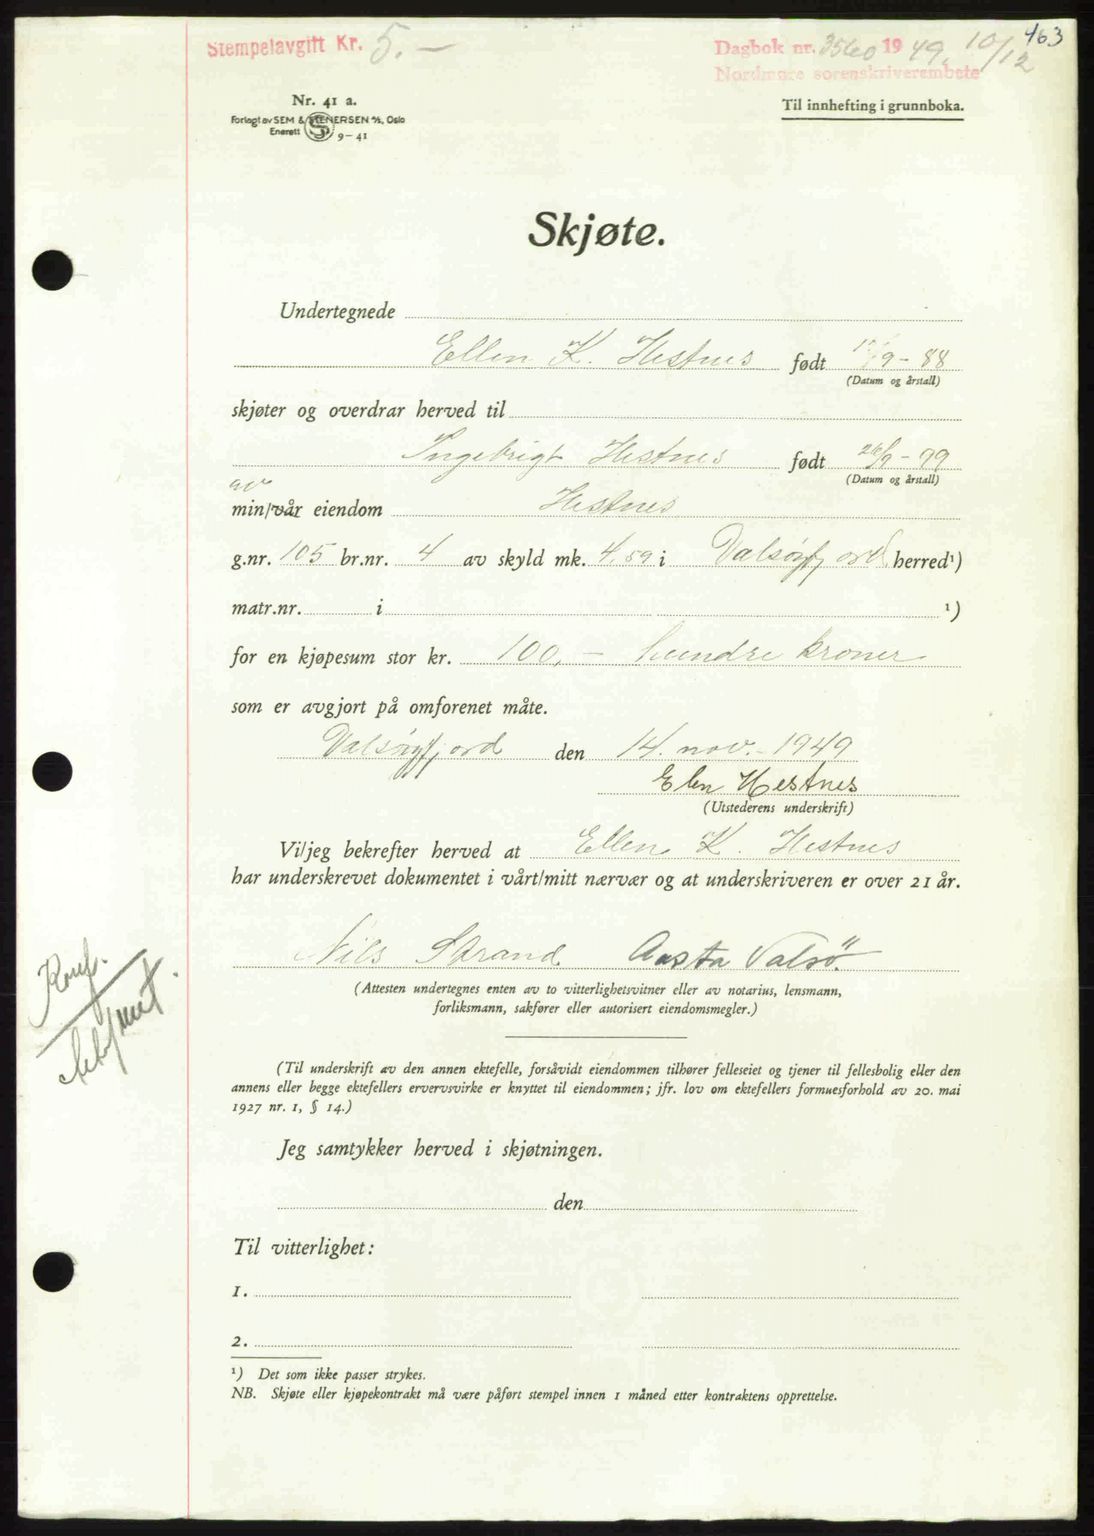 463
Stempelavgift Kr. 5.—
Dagbok nr. 3560 1949. 10/12
Nordmøre sorenskriverembete
Nr. 41 a.
Forlagt av SEM & STENERSEN A/S, Oslo
Enerett 9-41
Til innhefting i grunnboka.
Skjøte.
Undertegnede
Ellen K. Hestnes født /9-88
(Datum og årstall)
skjøter og overdrar herved til
Ingebrigt Hestnes født 26/9-99
(Datum og årstall)
av
min/vår eiendom Hestnes
g.nr. 105 br.nr. 4 av skyld mk. 4,59 i Valsøyfjord herred¹)
matr.nr. i ¹)
for en kjøpesum stor kr. 100,- hundre kroner
som er avgjort på omforenet måte.
Valsøyfjord den 14. nov.-1949
Elen Hestnes
(Utstederens underskrift)
Vi/jeg bekrefter herved at Ellen K. Hestnes
har underskrevet dokumentet i vårt/mitt nærvær og at underskriveren er over 21 år.
Nils Strand Aasta Valsö.
(Attesten undertegnes enten av to vitterlighetsvitner eller av notarius, lensmann,
forliksmann, sakfører eller autorisert eiendomsmegler.)
Konf.
(Til underskrift av den annen ektefelle, forsåvidt eiendommen tilhører felleseiet og tjener til fellesbolig eller den
annens eller begge ektefellers ervervsvirke er knyttet til eiendommen; jfr. lov om ektefellers formuesforhold av 20. mai
1927 nr. 1, § 14.)
Jeg samtykker herved i skjøtningen.
den
Til vitterlighet:
1.
2.
¹) Det som ikke passer strykes.
NB. Skjøte eller kjøpekontrakt må være påført stempel innen 1 måned etter kontraktens opprettelse.